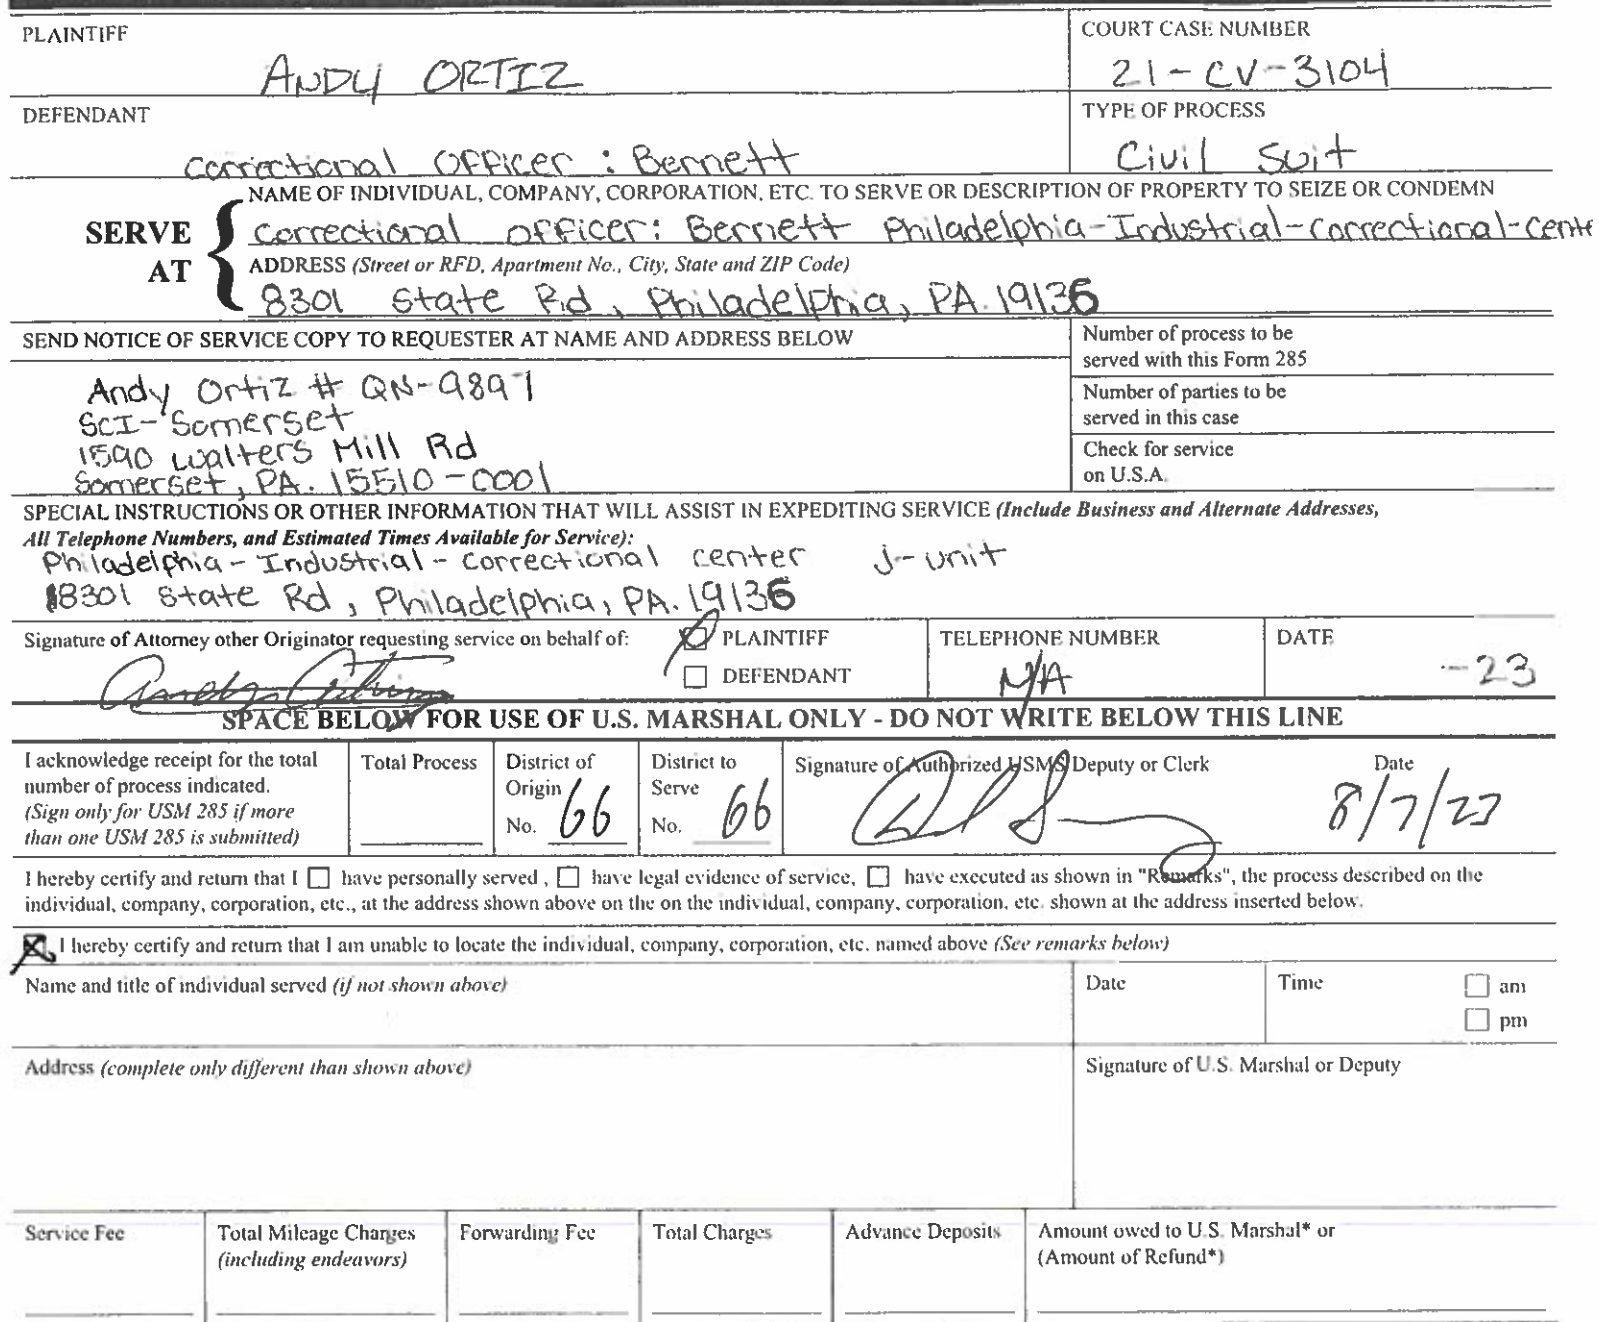 PLAINTIFF
ANDY ORTIZ
COURT CASE NUMBER
21-CV-3104
DEFENDANT
Correctional Officer: Bernett
TYPE OF PROCESS
Civil Suit
SERVE AT
NAME OF INDIVIDUAL, COMPANY, CORPORATION, ETC. TO SERVE OR DESCRIPTION OF PROPERTY TO SEIZE OR CONDEMN
Correctional Officer: Bernett Philadelphia-Industrial-Correctional-Cente
ADDRESS (Street or RFD, Apartment No., City, State and ZIP Code)
8301 State Rd, Philadelphia, PA. 19136
SEND NOTICE OF SERVICE COPY TO REQUESTER AT NAME AND ADDRESS BELOW
Andy Ortiz # QN-9897
SCI-Somerset
1590 Walters Mill Rd
Somerset, PA. 15510-0001
Number of process to be
served with this Form 285
Number of parties to be
served in this case
Check for service
on U.S.A.
SPECIAL INSTRUCTIONS OR OTHER INFORMATION THAT WILL ASSIST IN EXPEDITING SERVICE (Include Business and Alternate Addresses,
All Telephone Numbers, and Estimated Times Available for Service):
Philadelphia-Industrial-Correctional center J-unit
8301 State Rd, Philadelphia, PA. 19136
Signature of Attorney other Originator requesting service on behalf of:
PLAINTIFF
DEFENDANT
TELEPHONE NUMBER
N/A
DATE
-23
SPACE BELOW FOR USE OF U.S. MARSHAL ONLY - DO NOT WRITE BELOW THIS LINE
I acknowledge receipt for the total
number of process indicated.
(Sign only for USM 285 if more
than one USM 285 is submitted)
Total Process
District of
Origin
No. 66
District to
Serve
No. 66
Signature of Authorized USMS Deputy or Clerk
Date
8/7/23
I hereby certify and return that I have personally served , have legal evidence of service, have executed as shown in "Remarks", the process described on the
individual, company, corporation, etc., at the address shown above on the on the individual, company, corporation, etc. shown at the address inserted below.
I hereby certify and return that I am unable to locate the individual, company, corporation, etc. named above (See remarks below)
Name and title of individual served (if not shown above)
Date
Time
am
pm
Address (complete only different than shown above)
Signature of U.S. Marshal or Deputy
Service Fee
Total Mileage Charges
(including endeavors)
Forwarding Fee
Total Charges
Advance Deposits
Amount owed to U.S. Marshal* or
(Amount of Refund*)